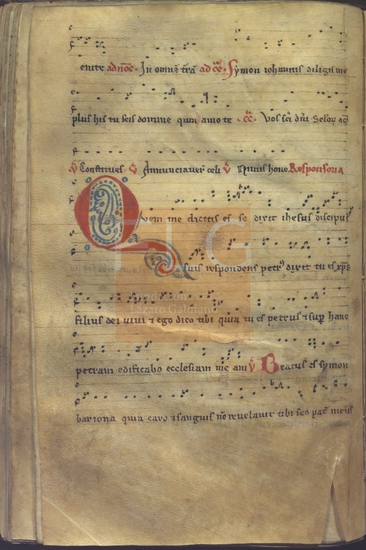 enite ad noc̄. In omnē trā ad cā. Symon iohannis diligis me
plus his tu scis domine quia amo te cā. Vos sci dn̄i
V Constitues V Annunciaver̄ celi V Nimis hono. Responsoria
Quem me dicitis esse dixit ihesus discipul'
suis respondens petr' dixit tu es xp̄s
filius dei uiui ⁊ ego dico tibi quia tu es petrus ⁊ sup̄ hanc
petram edificabo ecclesiam meam V Beatus es symon
bariona quia caro ⁊ sanguis nō reuelauit tibi sed pat̄ meus